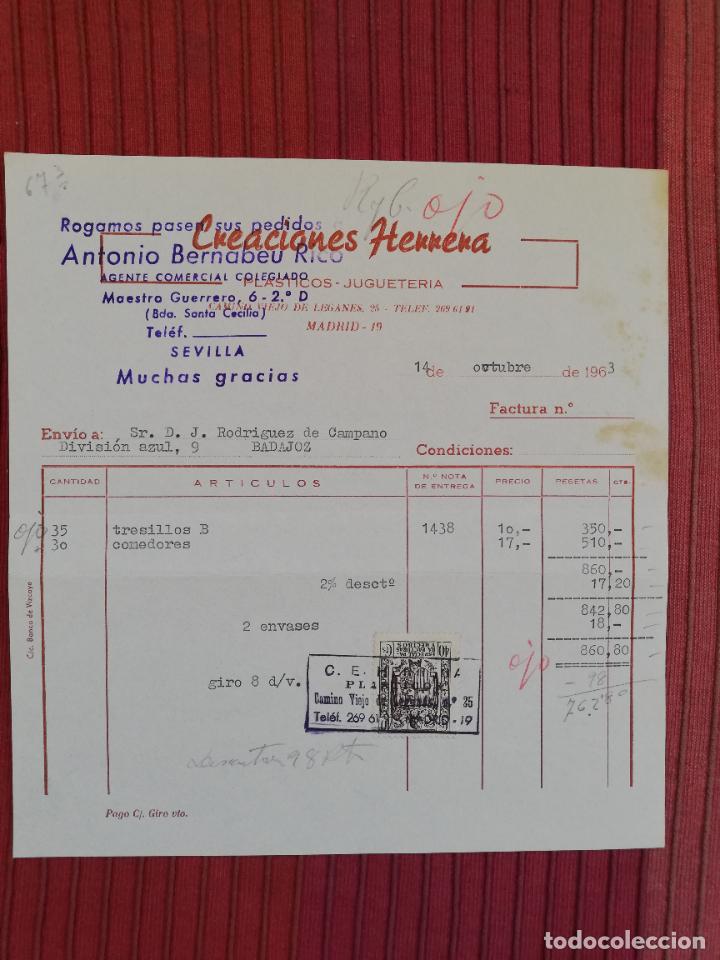 67
ojo
Rogamos pasen sus pedidos
Creaciones Herrera
Antonio Bernabeu Rico
AGENTE COMERCIAL COLEGIADO
PLASTICOS - JUGUETERIA
Maestro Guerrero, 6 - 2.° D
CAMINO VIEJO DE LEGANES, 25 - TELEF. 269 61 91
(Bda. Santa Cecilia)
MADRID - 19
Teléf.
SEVILLA
Muchas gracias
14 de octubre de 1963
Factura n.°
Envío a: Sr. D. J. Rodriguez de Campano
División azul, 9 BADAJOZ Condiciones:
CANTIDAD ARTICULOS N.° NOTA DE ENTREGA PRECIO PESETAS CTS.
ojo 35 tresillos B 1438 10,- 350,-
30 comedores 17,- 510,-
860,-
2% desctº 17,20
842,80
2 envases 18,-
860,80
ojo
- 98
762,80
giro 8 d/v.
40 Cts
ESPECIAL PARA FACTURAS Y RECIBOS
C. E.
Camino Viejo de n.° 25
Teléf. 269 61 MADRID - 19
98 Pts
Pago C/. Giro vto.
Cic. Banco de Vizcaya
todocoleccion
todocoleccion.net